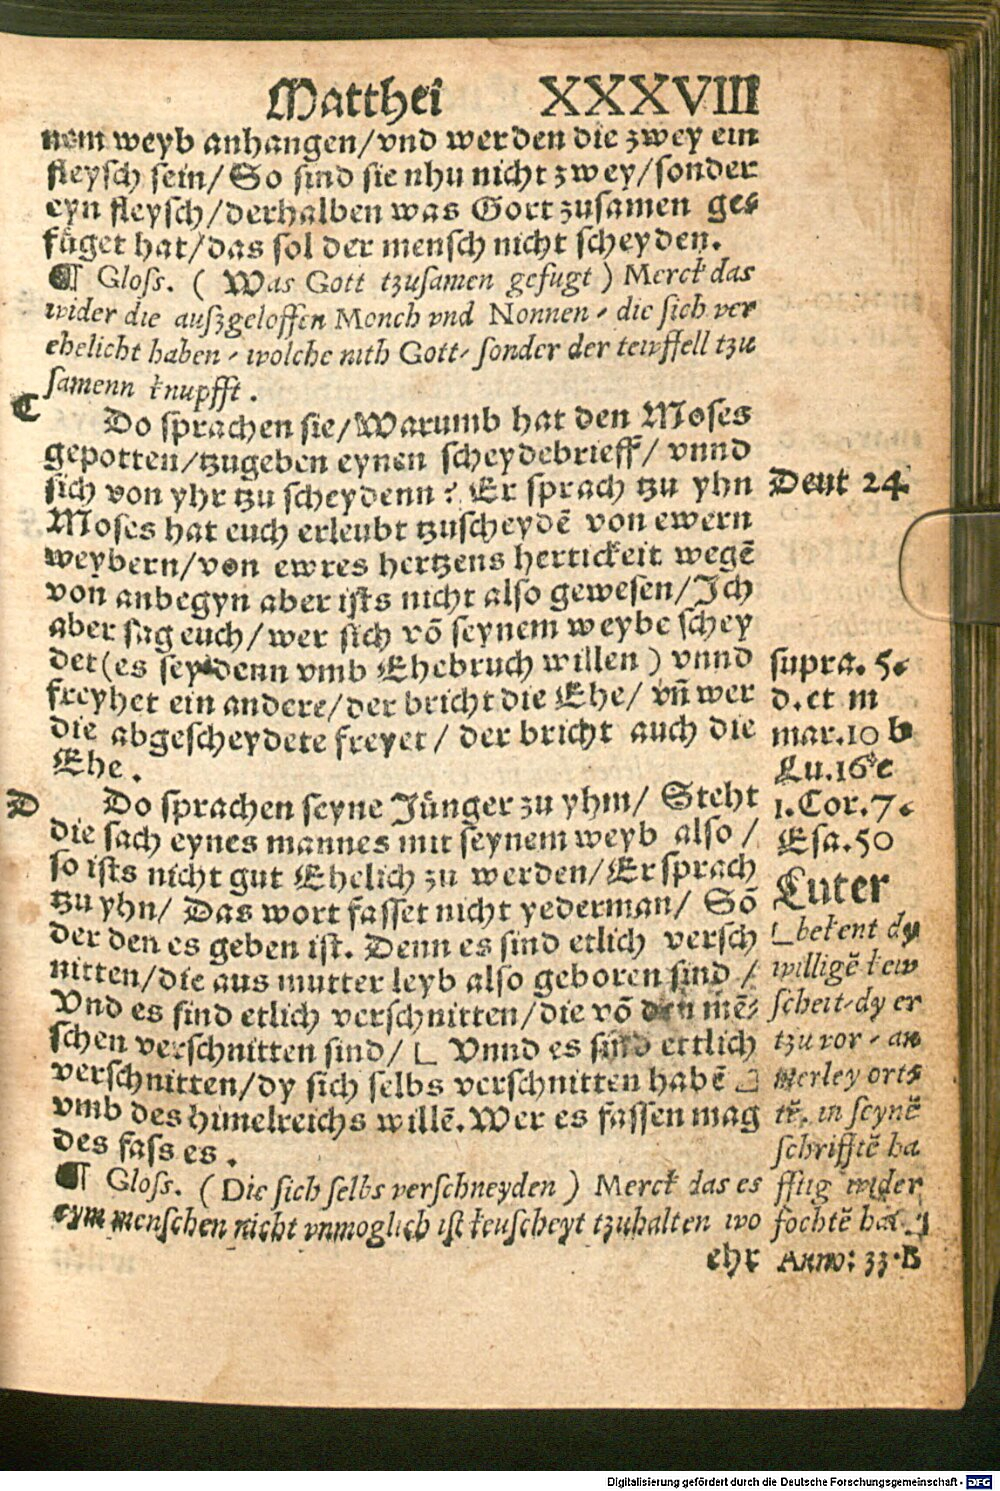 Matthei XXXVIII
nem weyb anhangen/vnd werden die zwey ein
fleysch sein/So sind sie nhu nicht zwey/sonder
eyn fleysch/derhalben was Gott zusamen ge⸗
füget hat/das sol der mensch nicht scheyden.
¶ Gloss. ( Was Gott tzusamen gefugt ) Merck das
wider die auszgeloffen Monch vnd Nonnen / die sich ver
ehelicht haben / wolche nith Gott/ sonder der tewffell tzu
samenn knupfft .
C
Do sprachen sie/Warumb hat den Moses
gepotten/tzugeben eynen scheydebrieff/ vnnd
sich von yhr tzu scheydenn? Er sprach tzu yhn
Moses hat euch erleubt tzuscheydē von ewern
weybern/von ewres hertzens hertickeit wegē
von anbegyn aber ists nicht also gewesen/Ich
aber sag euch/wer sich vō seynem weybe schey
det(es sey denn vmb Ehebruch willen) vnnd
freyhet ein andere/der bricht die Ehe/ vñ wer
die abgescheydete freyet/ der bricht auch die
Ehe.
D
Do sprachen seyne Jünger zu yhm/ Steht
die sach eynes mannes mit seynem weyb also/
so ists nicht gut Ehelich zu werden/Er sprach
tzu yhn/ Das wort fasset nicht yederman/ Sō
der den es geben ist. Denn es sind etlich versch
nitten/die aus mutter leyb also geboren sind /
Vnd es sind etlich verschnitten/die vō den mē⸗
schen verschnitten sind/ ⌊ Vnnd es sind ettlich
verschnitten/dy sich selbs verschnitten habē ⌋
vmb des himelreichs willē. Wer es fassen mag
des fass es .
¶ Gloss. (Die sich selbs verschneyden ) Merck das es
eym menschen nicht vnmoglich ist keuscheyt tzuhalten wo
ehr
Deut 24.
supra. 5.
d. et in
mar.10 b
Lu.16 c
1.Cor.7.
Esa.50
Luter
⌊bekent dy
willigē kew
scheit/dy er
tzu vor / an
merley orts
tē. in seynē
schrifftē ha
fftig wider
fochtē hat ⌋
Anno: 33.B
Digitalisierung gefördert durch die Deutsche Forschungsgemeinschaft - DFG